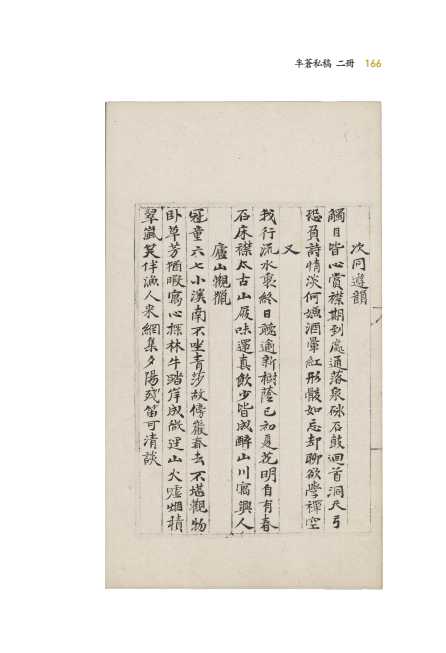 半蒼私稿 二冊 166
次同遊韻
觸目皆心賞襟期到處通落泉砯石鼓迴首洞天弓
恐負詩情淡何嫌酒暈紅形骸如忘却聊欲學禪空
又
我行流水裏終日聽逾新樹蔭已初夏花明自有春
石床襟太古山屐味還真飮少皆成醉山川寓興人
廬山觀獵
冠童六七小溪南不坐青莎故傍巖春去不堪觀物
卧草芳猶暇寫心探林牛踏岸成做逕山火爐烟積
翠嵐笑伴漁人來網集夕陽殘笛可清談